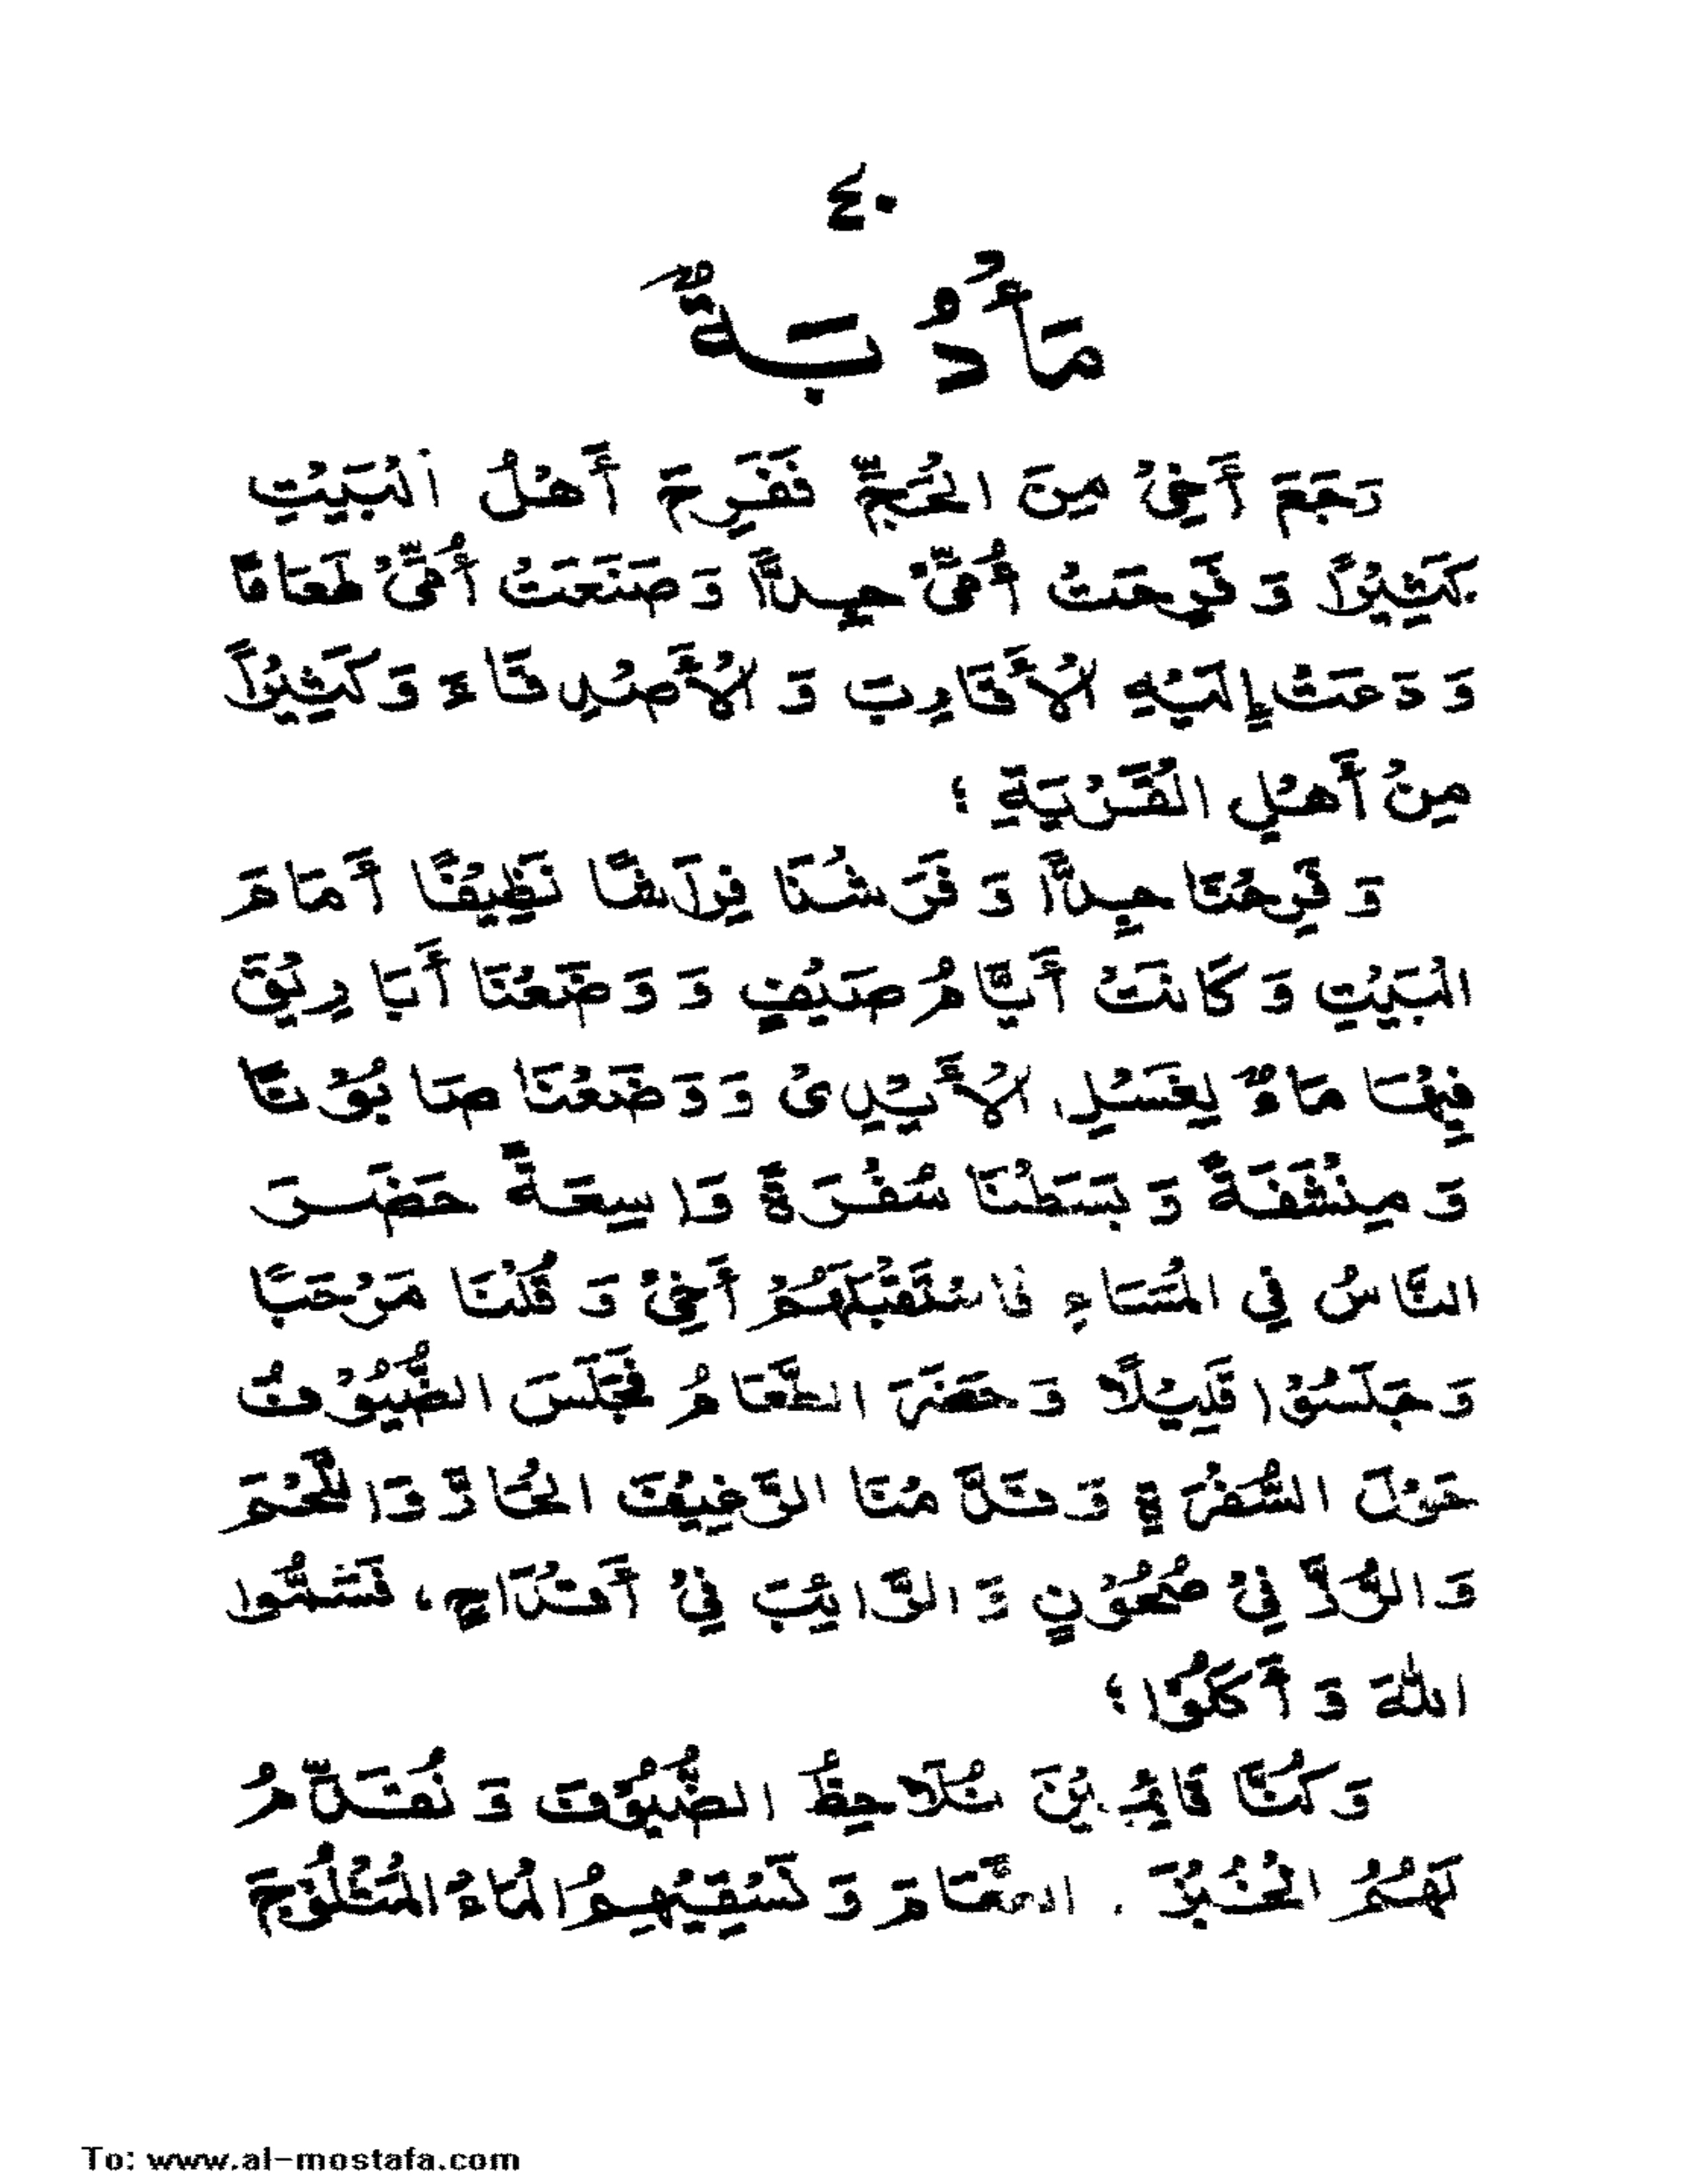 ٤٠
مَأْدُبَةٌ
رَجَعَ أَخِيْ مِنَ الْحَجِّ فَفَرِحَ أَهْلُ الْبَيْتِ
كَثِيْرًا وَ فَرِحَتْ أُمِّيْ جِدًّا وَ صَنَعَتْ أُمِّيْ طَعَامًا
وَ دَعَتْ إِلَيْهِ الْأَقَارِبَ وَ الْأَصْدِقَاءَ وَ كَثِيْرًا
مِنْ أَهْلِ الْقَرْيَةِ ؛
وَ فَرِحْنَا جِدًّا وَ فَرَشْنَا فِرَاشًا نَظِيْفًا أَمَامَ
الْبَيْتِ وَ كَانَتْ أَيَّامُ صَيْفٍ وَ وَضَعْنَا أَبَارِيْقَ
فِيْهَا مَاءٌ لِغَسْلِ الْأَيْدِيْ وَ وَضَعْنَا صَابُوْنًا
وَ مِنْشَفَةً وَ بَسَطْنَا سُفْرَةً وَاسِعَةً حَضَرَ
النَّاسُ فِي الْمَسَاءِ فَاسْتَقْبَلَهُمْ أَخِيْ وَ قُلْنَا مَرْحَبًا
وَ جَلَسُوْا قَلِيْلًا وَ حَضَرَ الطَّعَامُ فَجَلَسَ الضُّيُوْفُ
حَوْلَ السُّفْرَةِ وَ قَدَّمْنَا الرَّغِيْفَ الْحَارَّ وَاللَّحْمَ
وَ الرُّزَّ فِيْ صُحُوْنٍ وَ الرَّائِبَ فِيْ أَقْدَاحٍ، فَسَمَّوا
اللهَ وَ أَكَلُوْا ؛
وَ كُنَّا قَائِمِيْنَ نُلَاحِظُ الضُّيُوْفَ وَ نُقَدِّمُ
لَهُمُ الْخُبْزَ . الطَّعَامَ وَ نَسْقِيْهِمُ الْمَاءَ الْمَثْلُوْجَ
To: www.al-mostafa.com